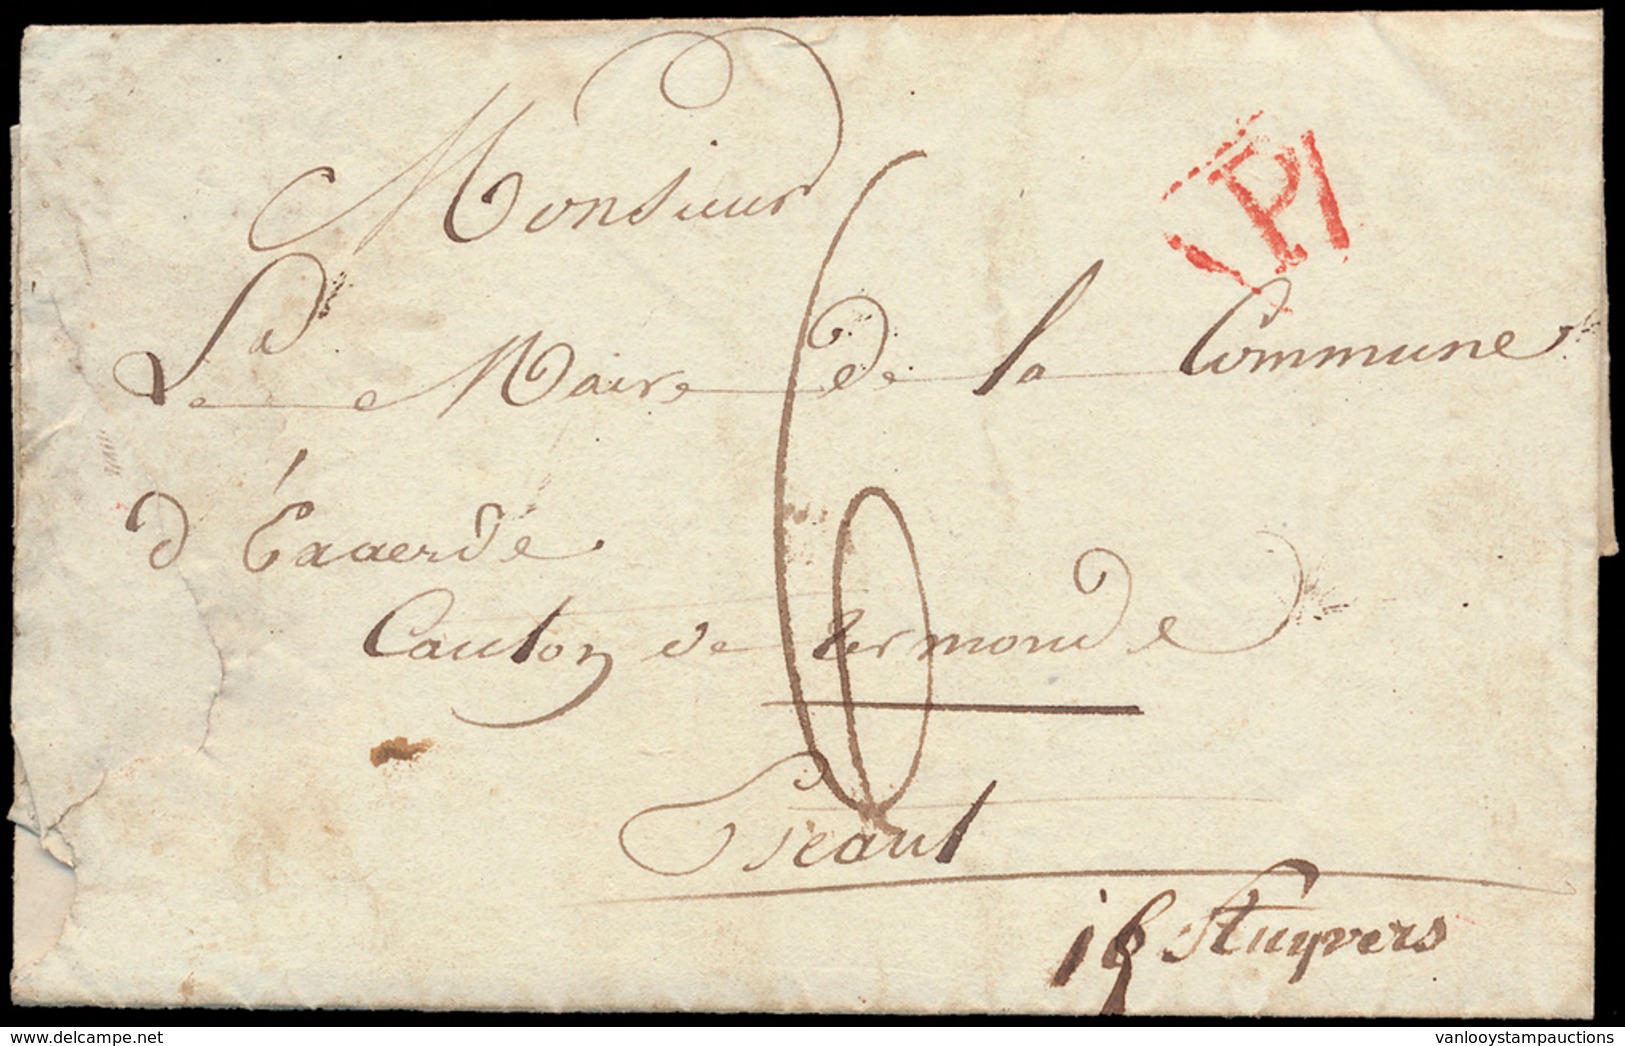 Monsieur
P
Le Maire de la Commune
d'Exaerde
Canton de termonde
6
16 Stuyvers
© delcampe.net
vanlooystampauctions